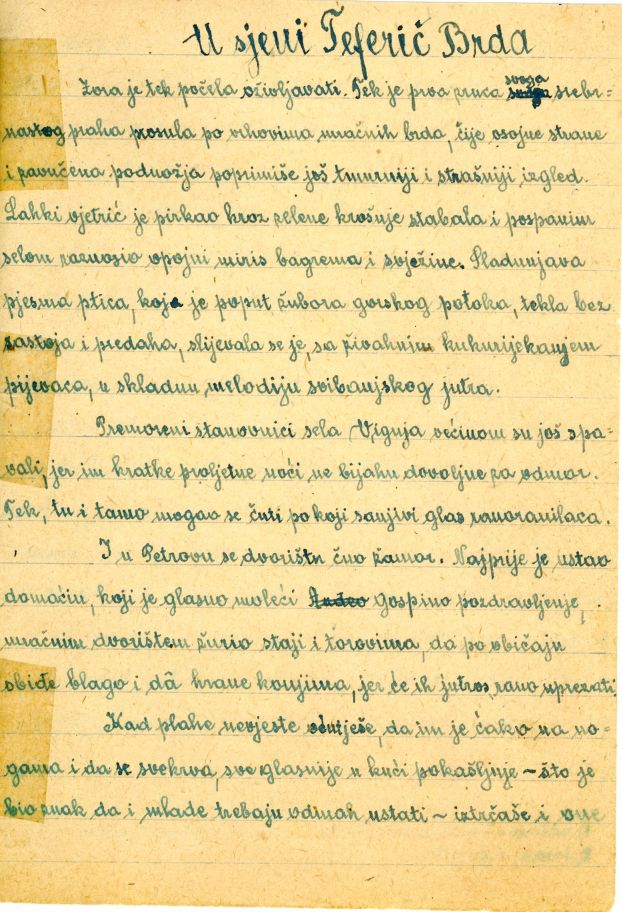 U sjeni Teferič Brda
Zora je tek počela oživljavati. Tek je prva pruca svoga srebr=
nastog praha prosula po vrhovima mračnih brda, čije osojne strane
i zavučena podnožja poprimiše još tmurniji i strašniji izgled.
Lahki vjetrić je pirkao kroz zelene krošnje stabala i pospanim
selom raznosio opojni miris bagrema i svježine. Sladunjava
pjesma ptica, koja je poput žubora gorskog potoka, tekla bez
zastoja i predaha, slijevala se je, sa živahnim kukurijekanjem
pijevaca, u skladnu melodiju svibanjskog jutra.
Premoreni stanovnici sela Vignja većinom su još spa-
vali, jer im kratke proljetne noći ne bijahu dovoljne za odmor.
Tek, tu i tamo mogao se čuti pokoji sanjivi glas ranoranilaca.
I u Petrovu se dvorištu čuo žamor. Najprije je ustao
domaćin, koji je glasno moleći Anđeo Gospino pozdravljenje,
mračnim dvorištem žurio staji i torovima, da po običaju
obiđe blago i dâ hrane konjima, jer će ih jutros rano uprezati.
Kad plahe nevjeste oćutješe, da im je ćako na no-
gama i da se svekrva, sve glasnije u kući pokašljuje ~ što je
bio znak da i mlade trebaju odmah ustati ~ iztrčaše i one